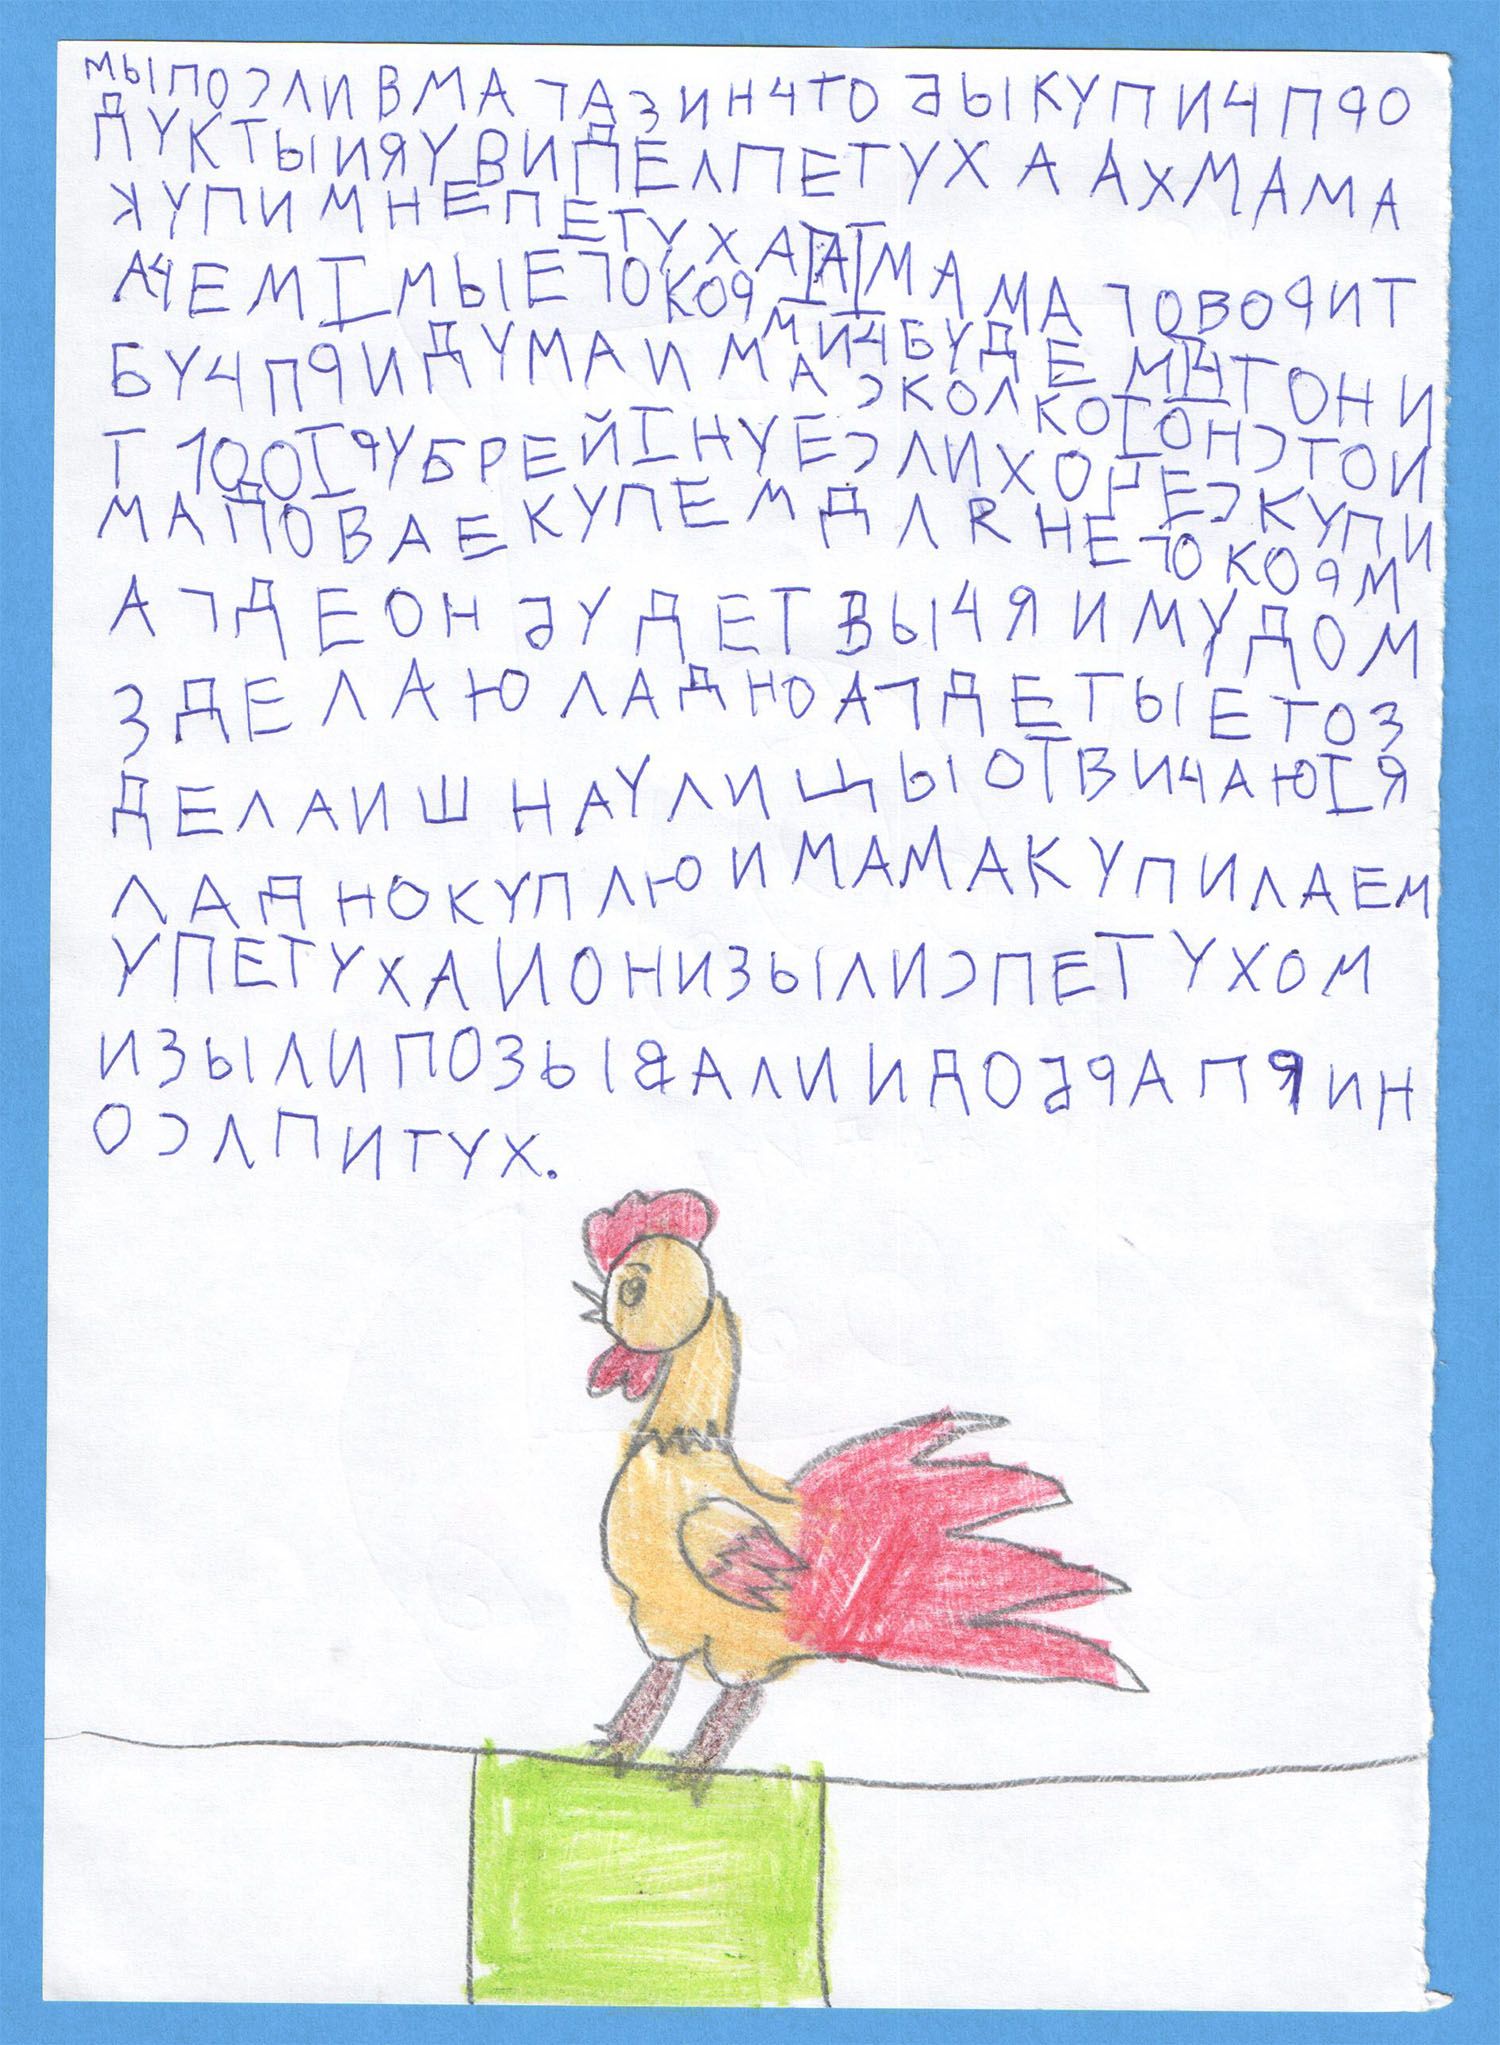 МЫПОСЛИВМАГАЗИНЧТОБЫКУПИЧПРО
ДУКТЫИЯУВИДЕЛПЕТУХААХМАМА
КУПИМНЕПЕТУХА
АЧЕММЫЕГОКОРМАМАГОВОРИТ
МИЧБУДЕМ
БУЧПРИДУМАИМАСКОЛКОТОНИ
Т100РУБРЕЙНУЕСЛИХОРЕСКУПИ
МАДОВАЕКУПЕМДЛЯНЕГОКОРМ
АГДЕОНБУДЕТВЫЧЯИМУДОМ
ЗДЕЛАЮЛАДНОАГДЕТЫЕТОЗ
ДЕЛАИШНАУЛИЦЫОТВИЧАЮЯ
ЛАДНОКУПЛЮИМАМАКУПИЛАЕМ
УПЕТУХАИОНИЗЫЛИСПЕТУХОМ
ИЗЫЛИПОЗЫВАЛИИДОБРАПРИН
ОСЛПИТУХ.